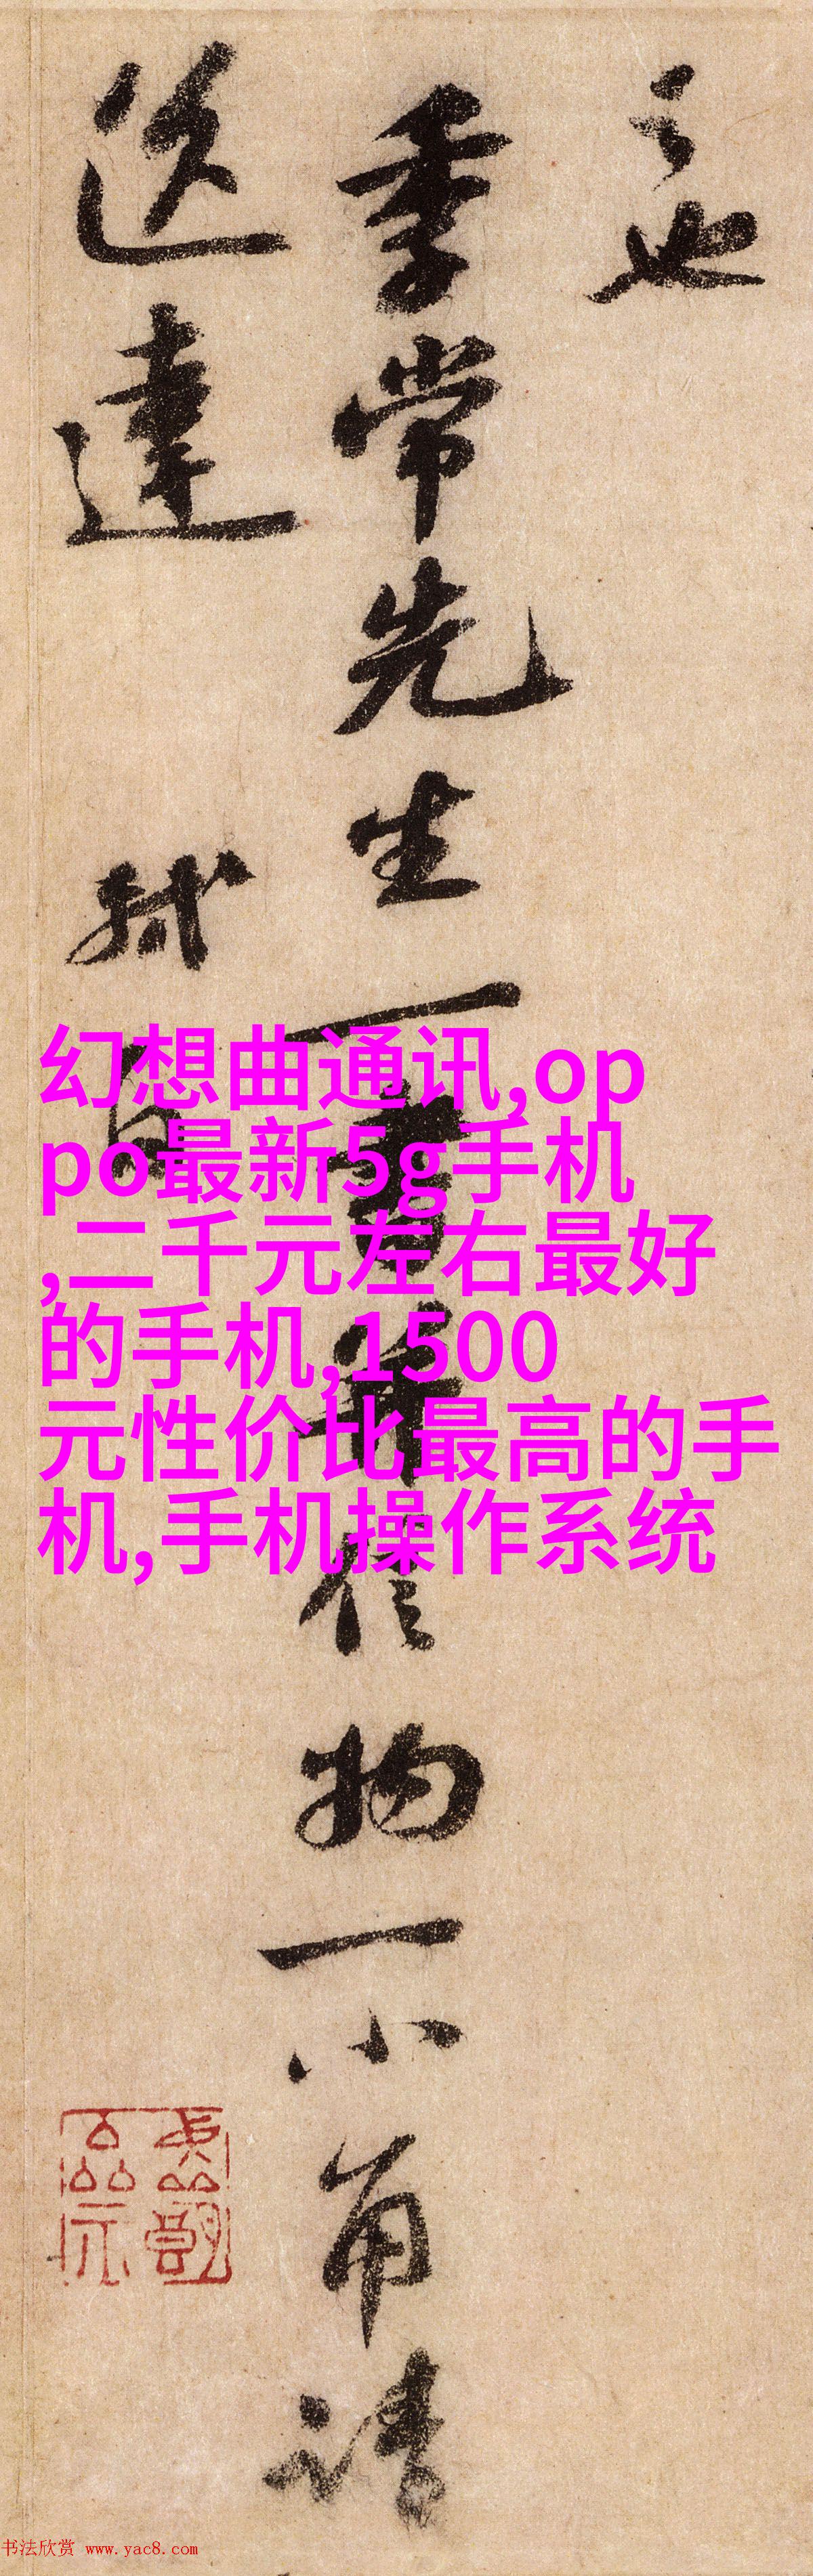 之也
季常先生一書并信物一小角請
送達
軾白
幻想曲通讯,op
po最新5g手机
,二千元左右最好
的手机,1500
元性价比最高的手
机,手机操作系统
书法欣赏 www.yac8.com